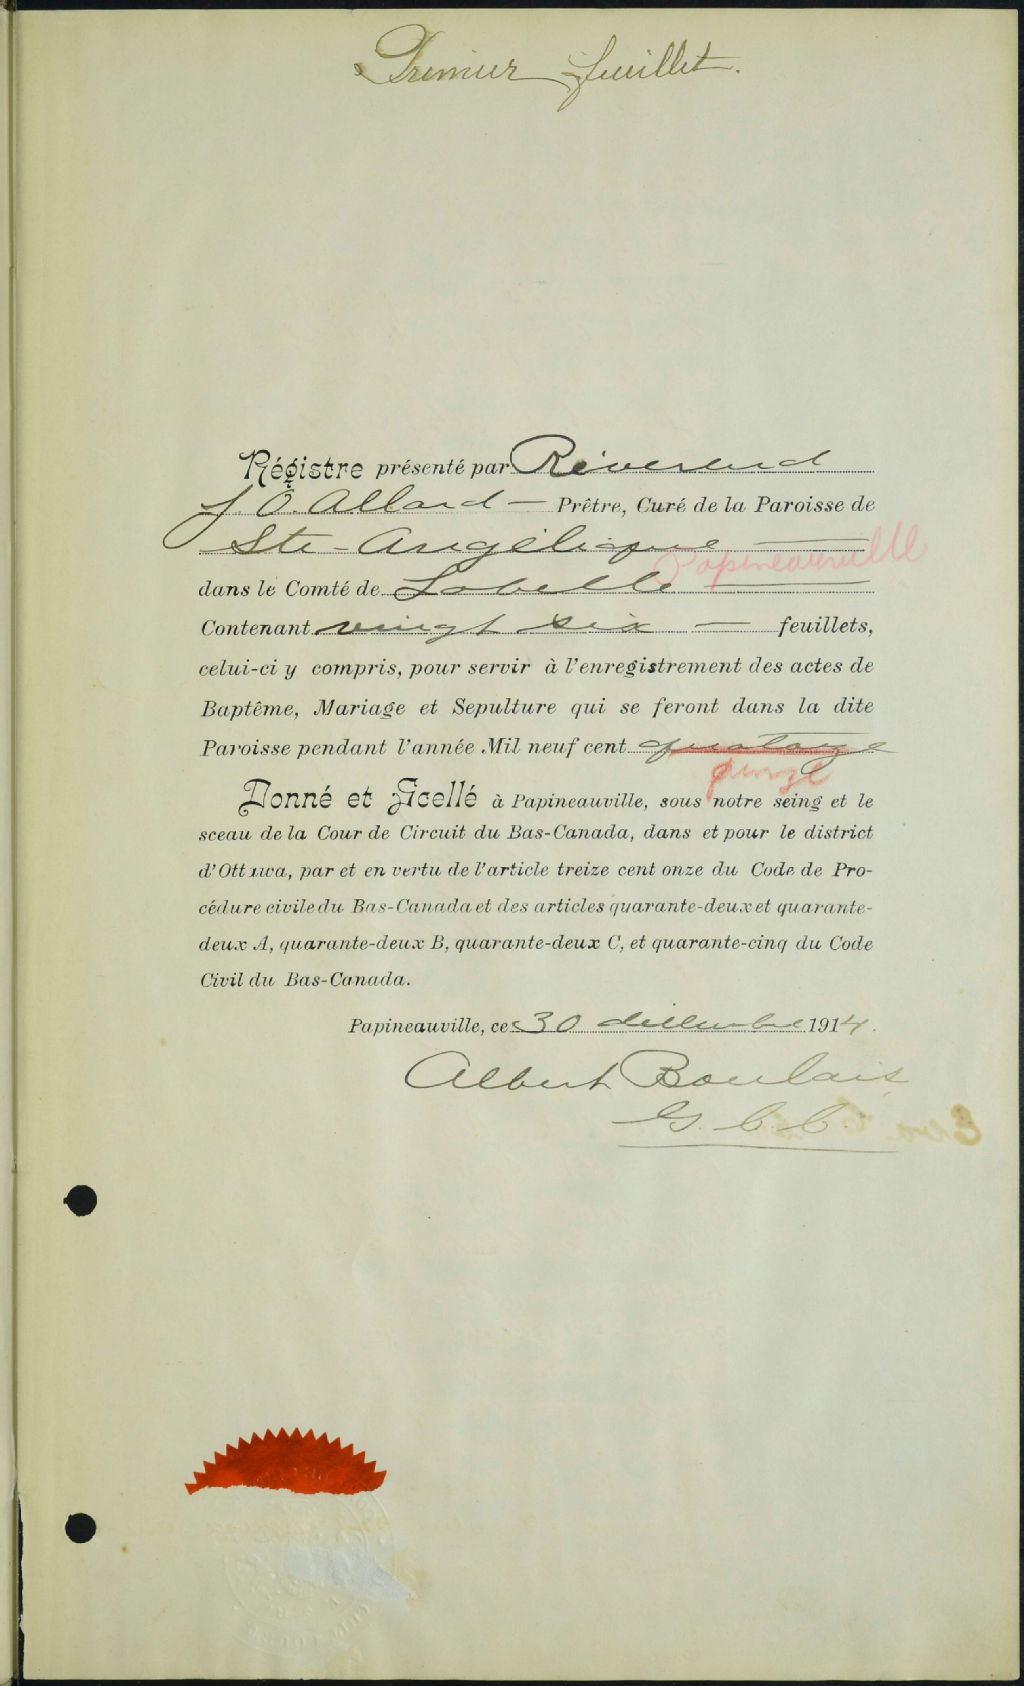 Premier feuillet.
Régistre présenté par Révérend
J. O. Allard — Prêtre, Curé de la Paroisse de
Ste-Angélique —
Papineauville
dans le Comté de Labelle —
Contenant vingt six — feuillets,
celui-ci y compris, pour servir à l'enregistrement des actes de
Baptême, Mariage et Sepulture qui se feront dans la dite
Paroisse pendant l'année Mil neuf cent quatorze
quinze
Donné et Scellé à Papineauville, sous notre seing et le
sceau de la Cour de Circuit du Bas-Canada, dans et pour le district
d'Ottawa, par et en vertu de l'article treize cent onze du Code de Pro-
cédure civile du Bas-Canada et des articles quarante-deux et quarante-
deux A, quarante-deux B, quarante-deux C, et quarante-cinq du Code
Civil du Bas-Canada.
Papineauville, ce 30 décembre 1914.
Albert Boulais
G. C. C.